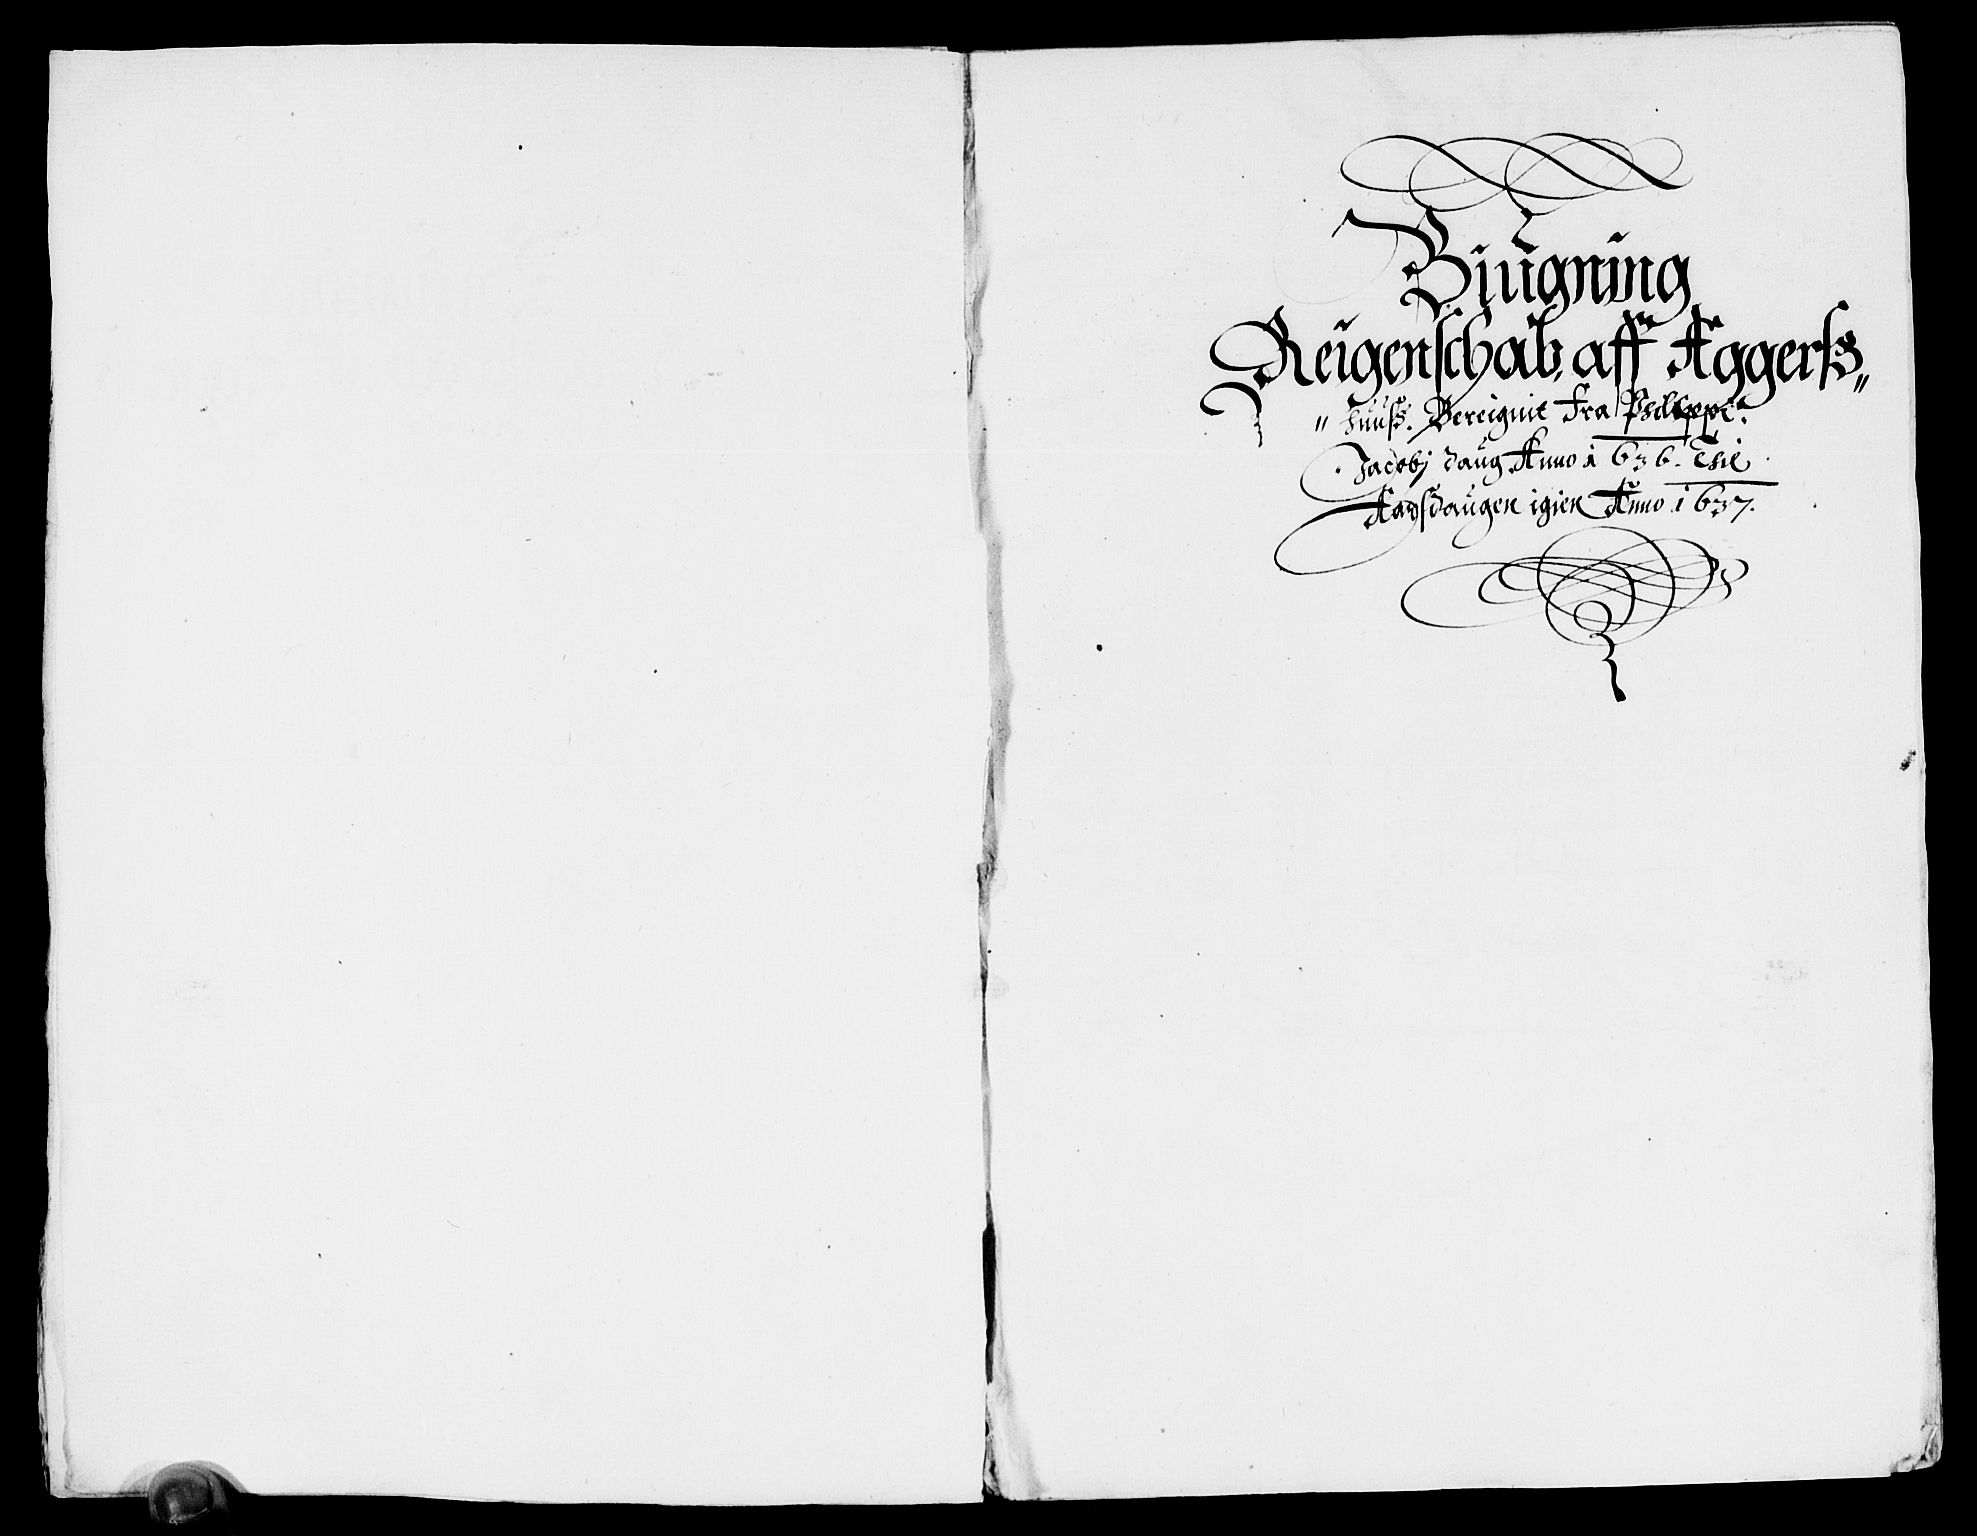 Biugning
Reigenschab, aff Aggerß„
„huuß. Bereignit fra Philippi.
Jacobj daug Anno 1636. Thil
Aarsdaugen igien Anno 1637.